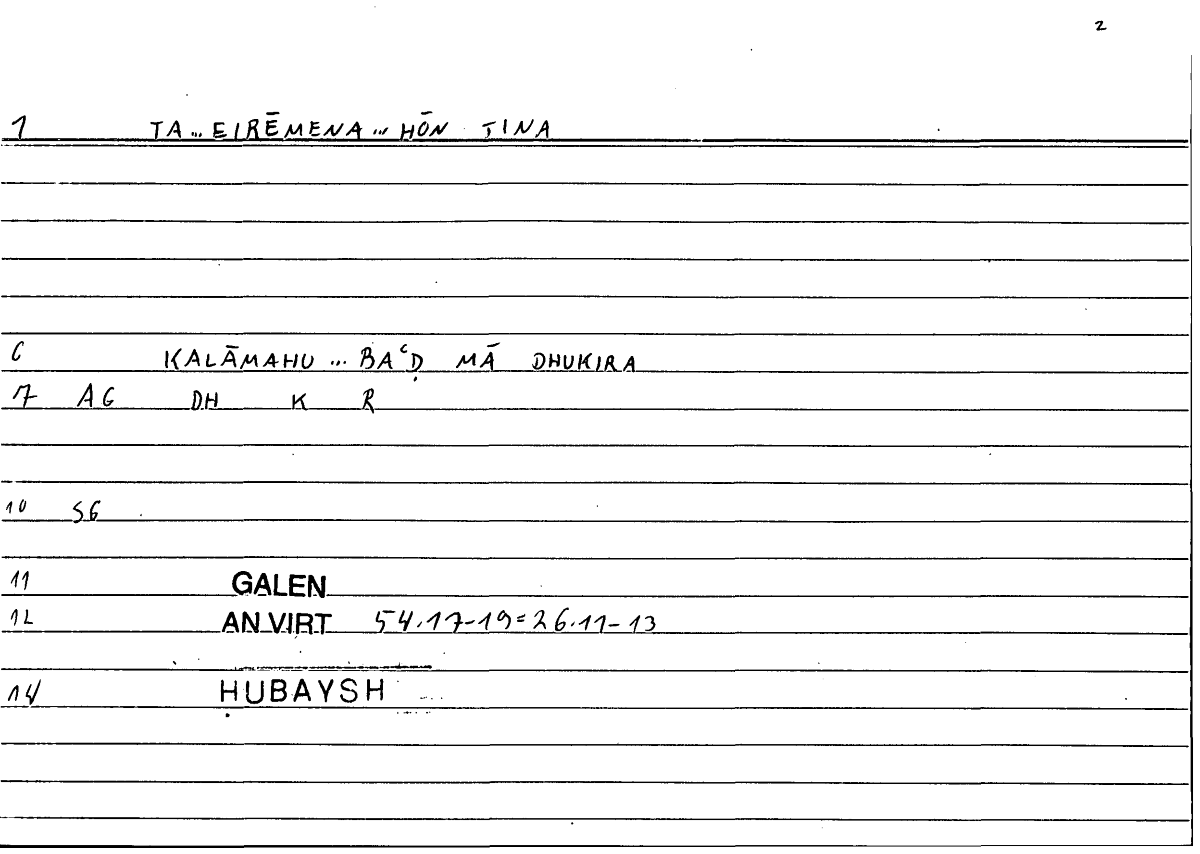 2
1 TA... EIRĒMENA... HŌN TINA
6 KALĀMAHU ... BAʿḌ MĀ DHUKIRA
7 AG DH K R
10 SG
11 GALEN
12 AN VIRT 54.17-19=26.11-13
14 ḤUBAYSH